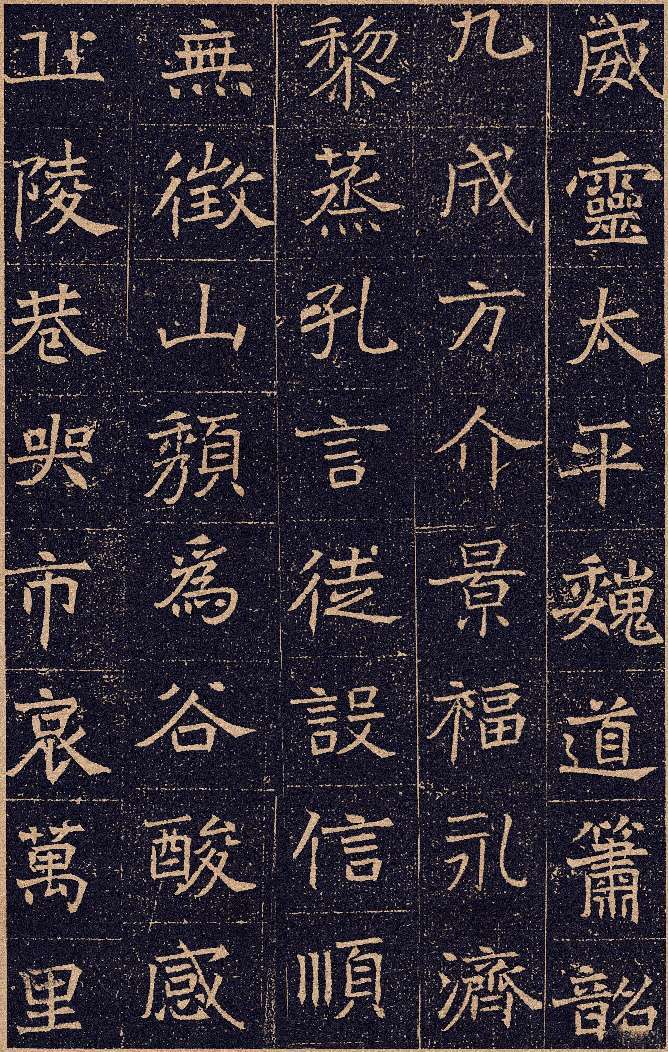 威靈太平魏道簫韶
九成方介景福永濟
黎蒸孔言徒設信順
無徵山頹爲谷酸感
丘陵巷哭市哀萬里